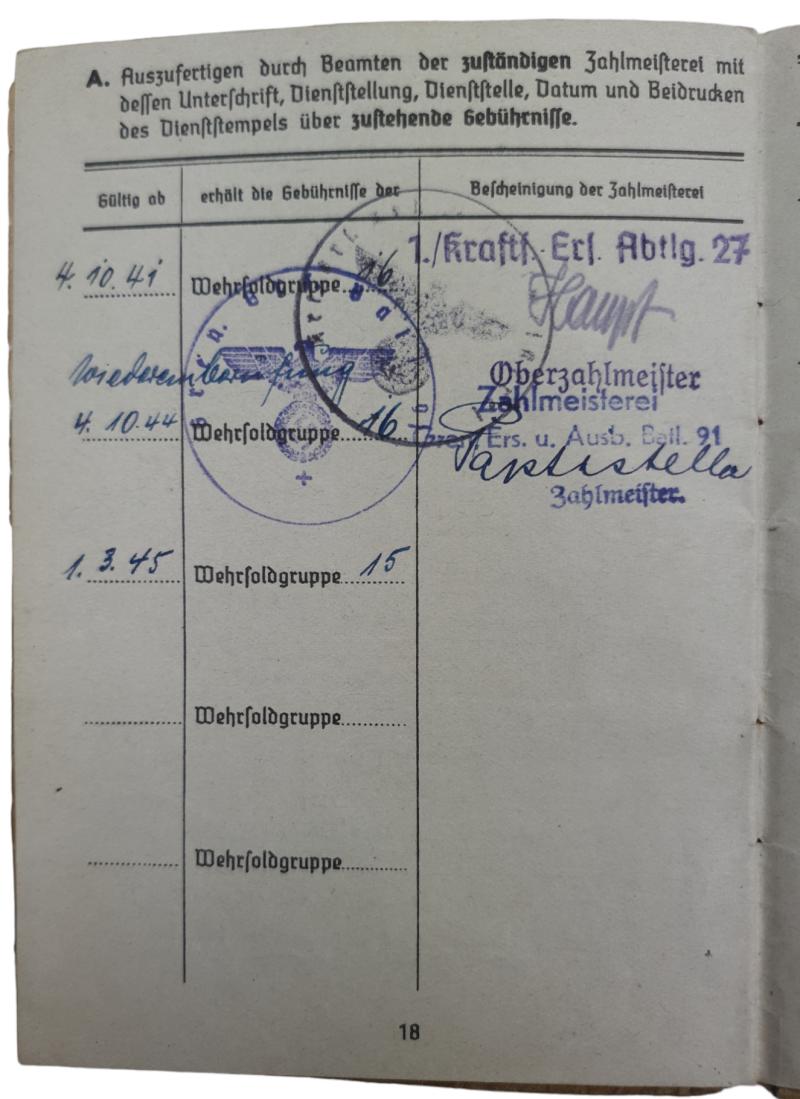 A. Auszufertigen durch Beamten der zuständigen Zahlmeisterei mit
dessen Unterschrift, Dienststellung, Dienststelle, Datum und Beidrucken
des Dienststempels über zustehende Gebührnisse.
Gültig ab
erhält die Gebührnisse der
Bescheinigung der Zahlmeisterei
1./Kraftf. Ers. Abtlg. 27
4. 10. 41
Wehrsoldgruppe 16
Haupt
Oberzahlmeister
Wiedereinberufung
Zahlmeisterei
4. 10. 44
Wehrsoldgruppe 16
Ers. u. Ausb. Batl. 91
Zahlmeister.
1. 3. 45
Wehrsoldgruppe 15
Wehrsoldgruppe
Wehrsoldgruppe
18